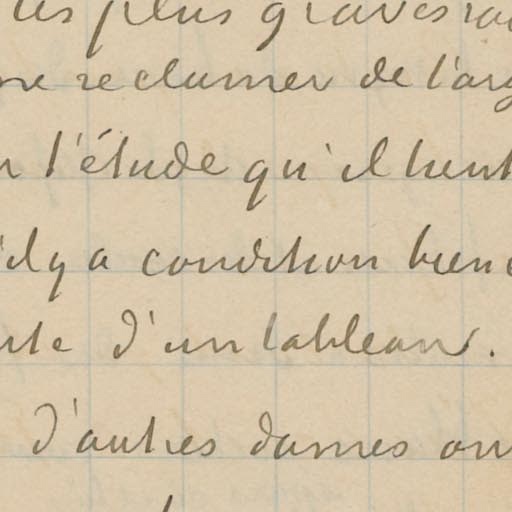 les plus graves
me reclamer de l'arg
l'étude qu'il tient
il y a condition bien
d'un tableau.
D'autres dames on